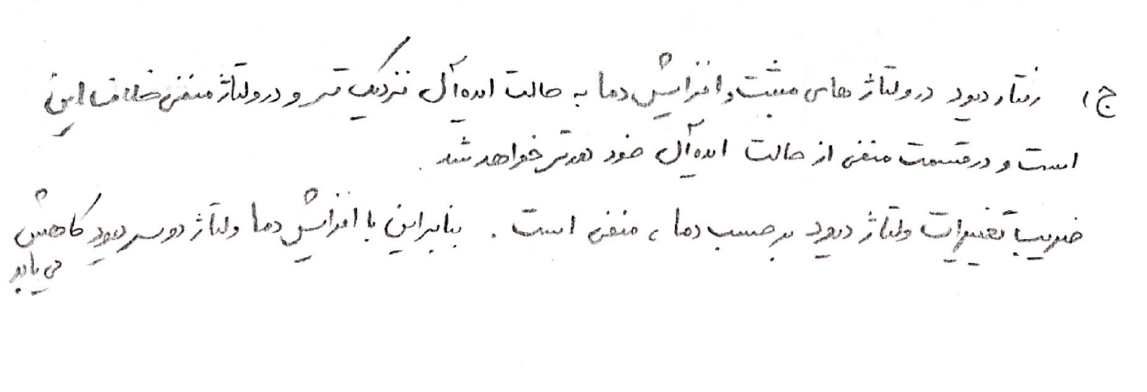 ج) رفتار دیود در ولتاژ های مثبت و افزایش دما به حالت ایده‌آل نزدیک تر و در ولتاژ منفی خلاف این
است و در قسمت منفی از حالت ایده‌آل خود دورتر خواهد شد.
ضریب تغییرات ولتاژ دیود برحسب دما ، منفی است . بنابراین با افزایش دما ولتاژ دوسر دیود کاهش
می‌یابد